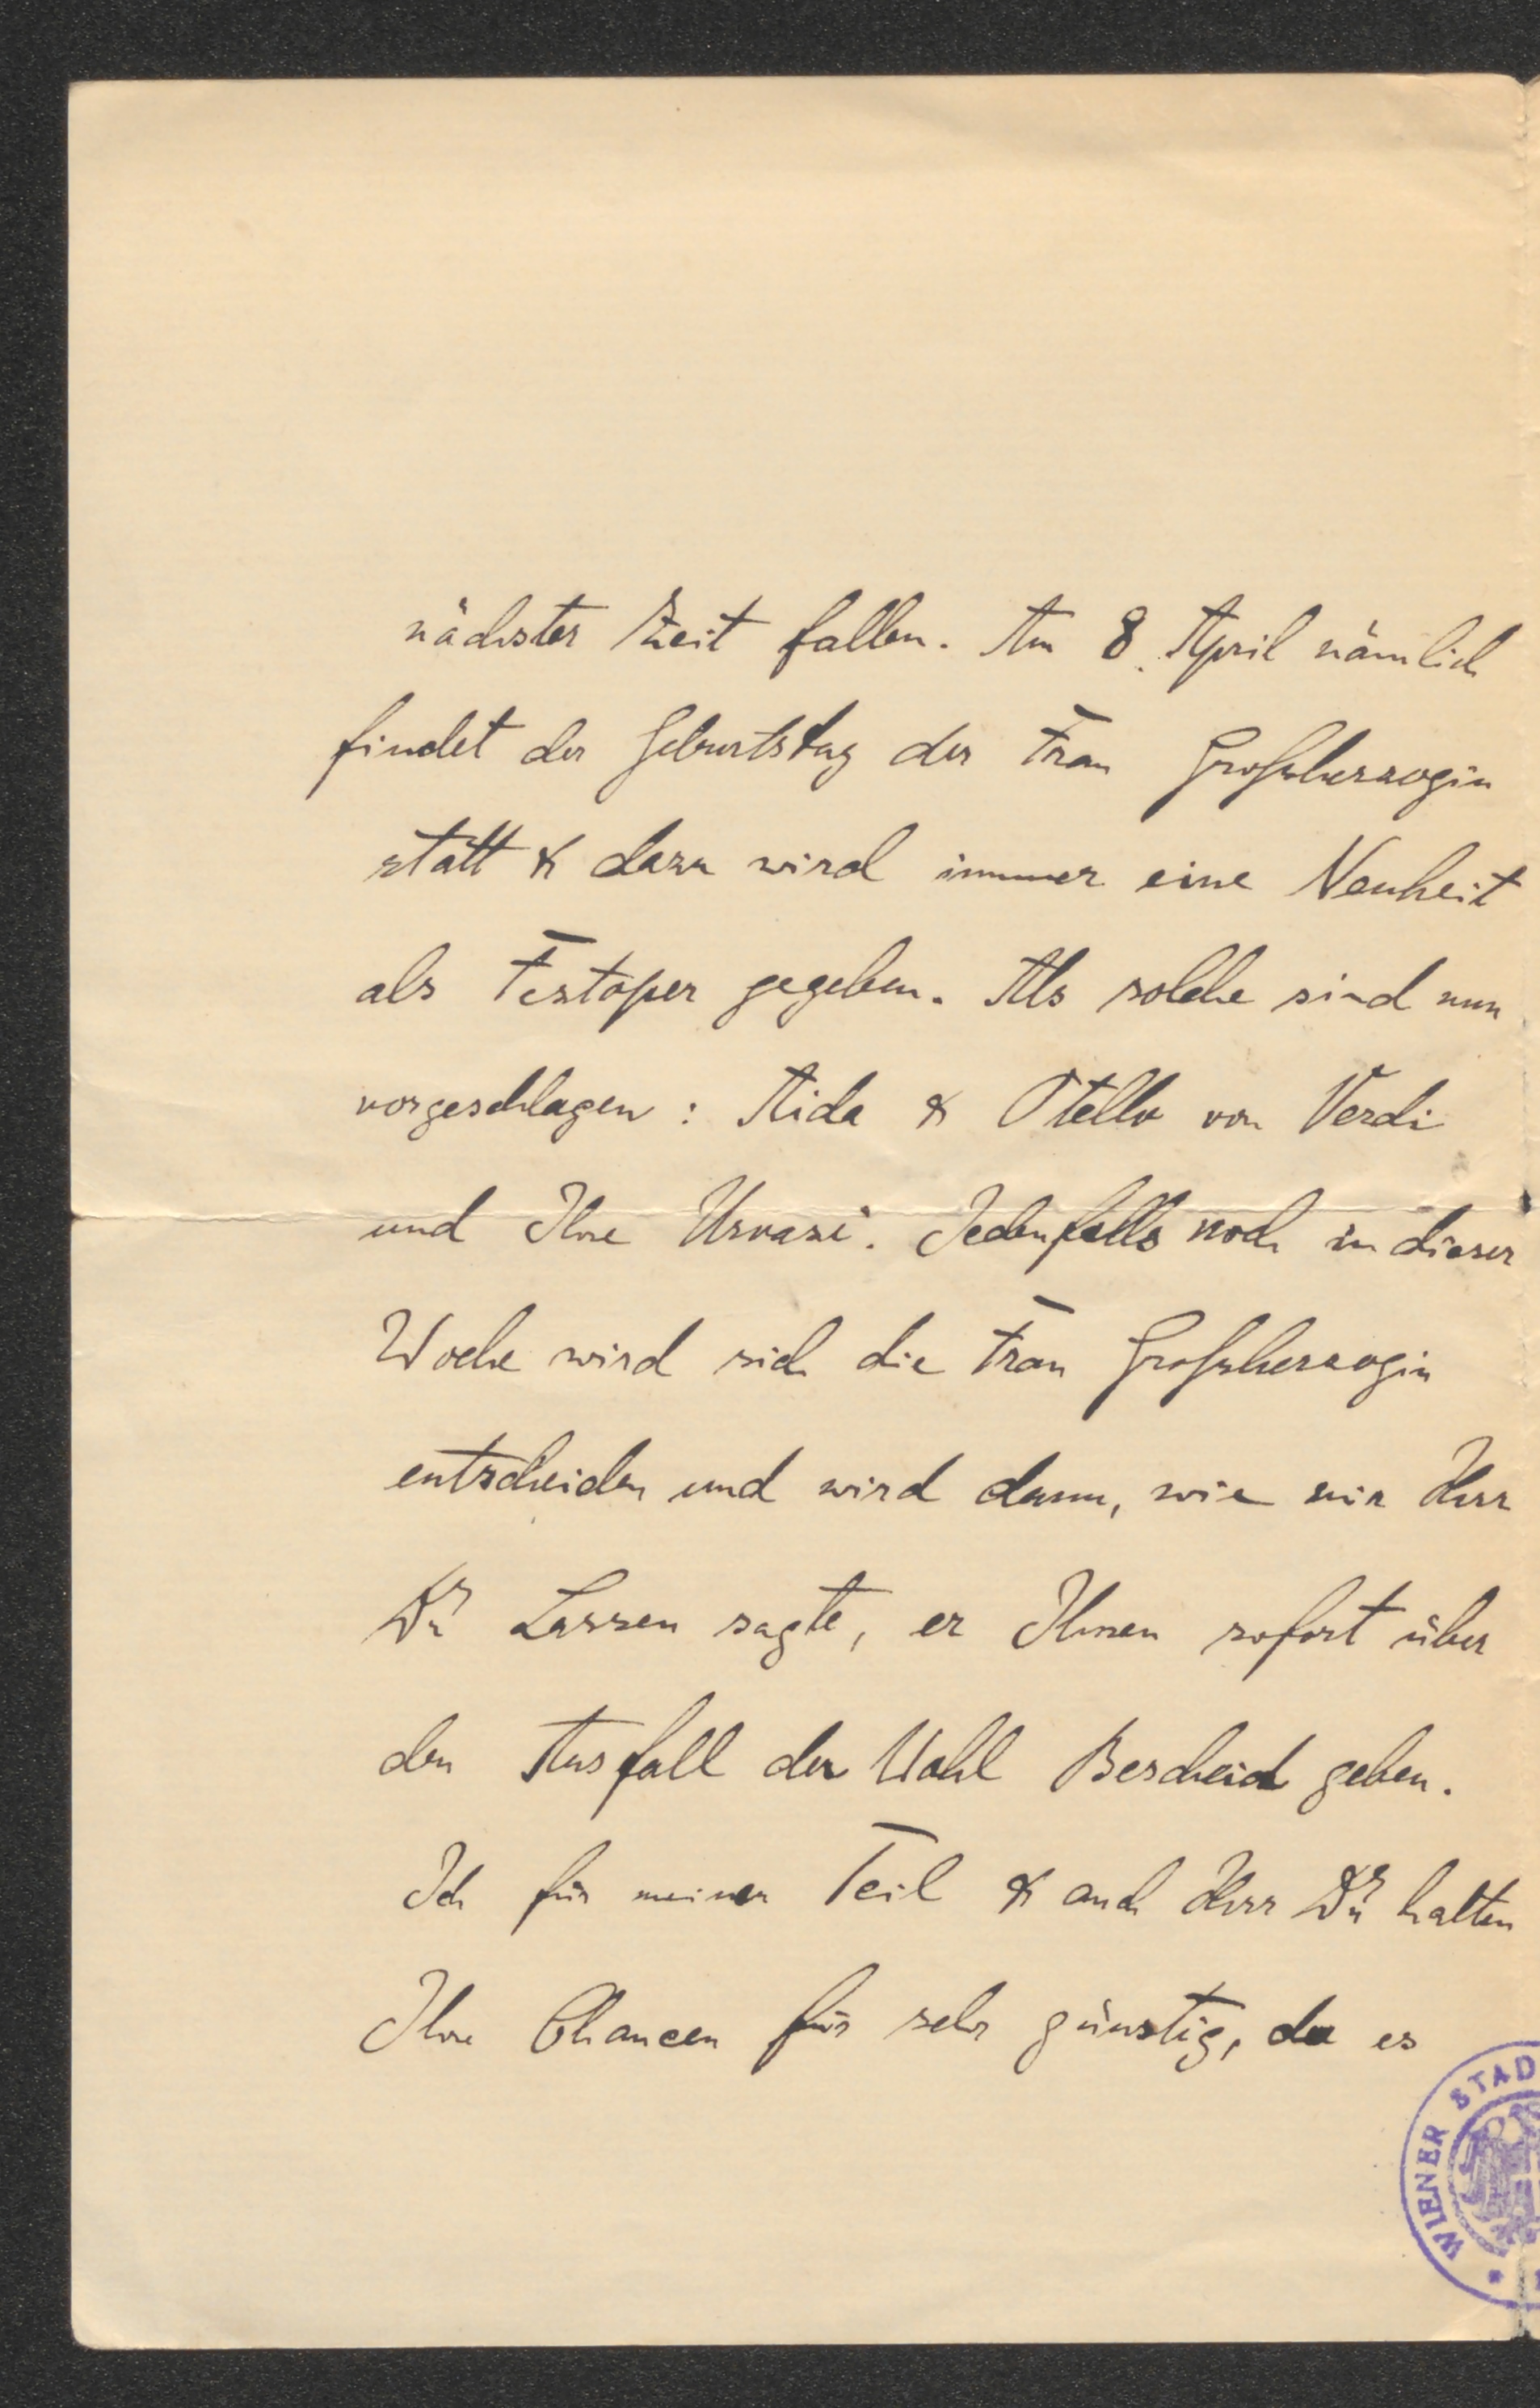 nächster Zeit fallen. Am 8. April nämlich
findet der Geburtstag der Frau Großherzogin
statt & dazu wird immer eine Neuheit
als Festoper gegeben. Als solche sind nun
vorgeschlagen: Aida & Otello von Verdi
und Ihre Urvasi. Jedenfalls noch in dieser
Woche wird sich die Frau Großherzogin
entscheiden und wird dann, wie mir Herr
Dr Lassen sagte, er Ihnen sofort über
den Ausfall der Wahl Bescheid geben.
Ich für meinen Teil & auch Herr Dr halten
Ihre Chancen für sehr günstig, da es
WIENER STAD